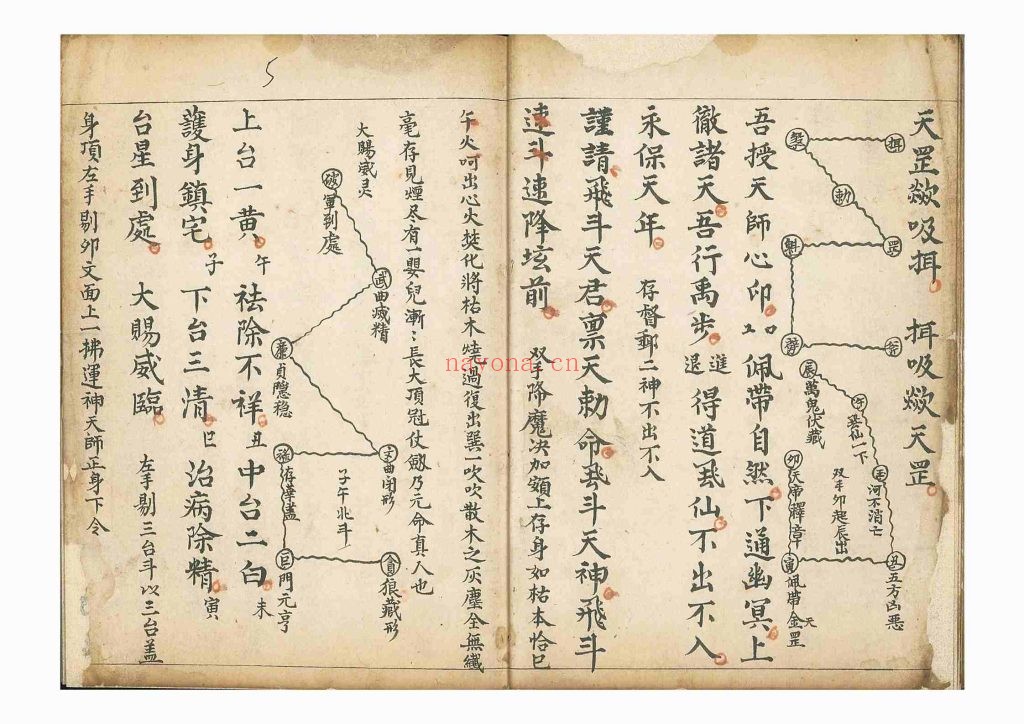 天罡歘吸挕 挕吸歘天罡
挕
勅
罡
魁
萬鬼伏藏
辰
午
登仙一下
丑
河不消亡
卯
天帝釋章
双手卯起辰出
寅
佩帶金罡
天
丑
五方凶惡
吾授天師心印如佩帶自然下通幽冥上
徹諸天吾行禹步進退得道飛仙不出不入
永保天年 存督郵二神不出不入
謹請飛斗天君稟天勅命飛斗天神飛斗
速斗速降坛前 双手降魔决加額上存身如枯本恰巳
午火呵出心火㷊化將枯木燒過復出巽一吹吹散木之灰塵全無纖
毫存見煙尽有一嬰兒漸〻長大頂冠仗劔乃元命真人也
大賜威灵
破軍到處
武曲威精
廉貞隱稳
文曲閉形
祿存華盖
子午北斗
巨門元亨
貪狼藏形
上台一黄午 祛除不祥丑 中台二白未
護身鎮宅子 下台三清巳 治病除精寅
台星到處 大賜威臨 左手剔三台斗以三台盖
身頂左手剔卯文面上一拂運神天師正身下令
5
nayona.cn